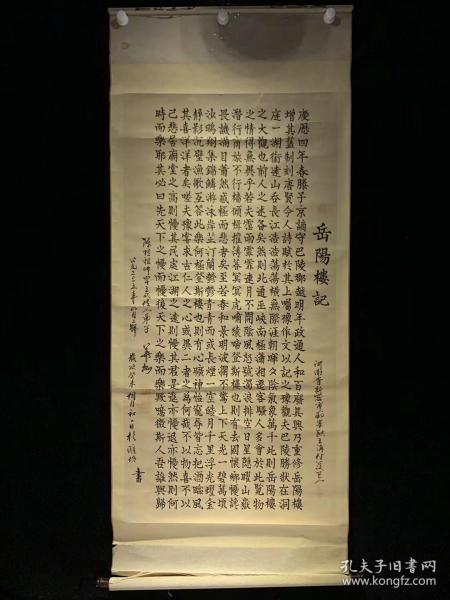 岳陽樓記
慶曆四年春滕子京謫守巴陵郡越明年政通人和百廢具興乃重修岳陽樓
增其舊制刻唐賢今人詩賦於其上囑豫作文以記之豫觀夫巴陵勝狀在洞
庭一湖銜遠山吞長江浩浩蕩蕩橫無際涯朝暉夕陰氣象萬千此則岳陽樓
之大觀也前人之述备矣然則北通巫峽南極瀟湘遷客騷人多會於此覽物
之情得無異乎若夫霪雨霏霏連月不開陰風怒號濁浪排空日星隱曜山嶽
潛行商旅不行檣傾楫摧薄暮冥冥虎嘯猿啼登斯樓也則有去國懷鄉懮讒
畏譏滿目蕭然感極而悲者矣至若春和景明波瀾不驚上下天光一碧萬頃
沙鷗翔集錦鱗游泳岸芷汀蘭郁郁青青而或長煙一空皓月千里浮光曜金
靜影沉璧漁歌互答此樂何極登斯樓也則有心曠神怡寵辱皆忘把酒臨風
其喜洋洋者矣嗟夫豫嘗求古仁人之心或異二者之為何哉不以物喜不以
己悲居廟堂之高則懮其民處江湖之遠則懮其君是進亦懮退亦懮然則何
時而樂耶其必曰先天下之懮而懮後天下之樂而樂歟噫微斯人吾誰與歸
書
孔夫子旧书网
www.kongfz.com